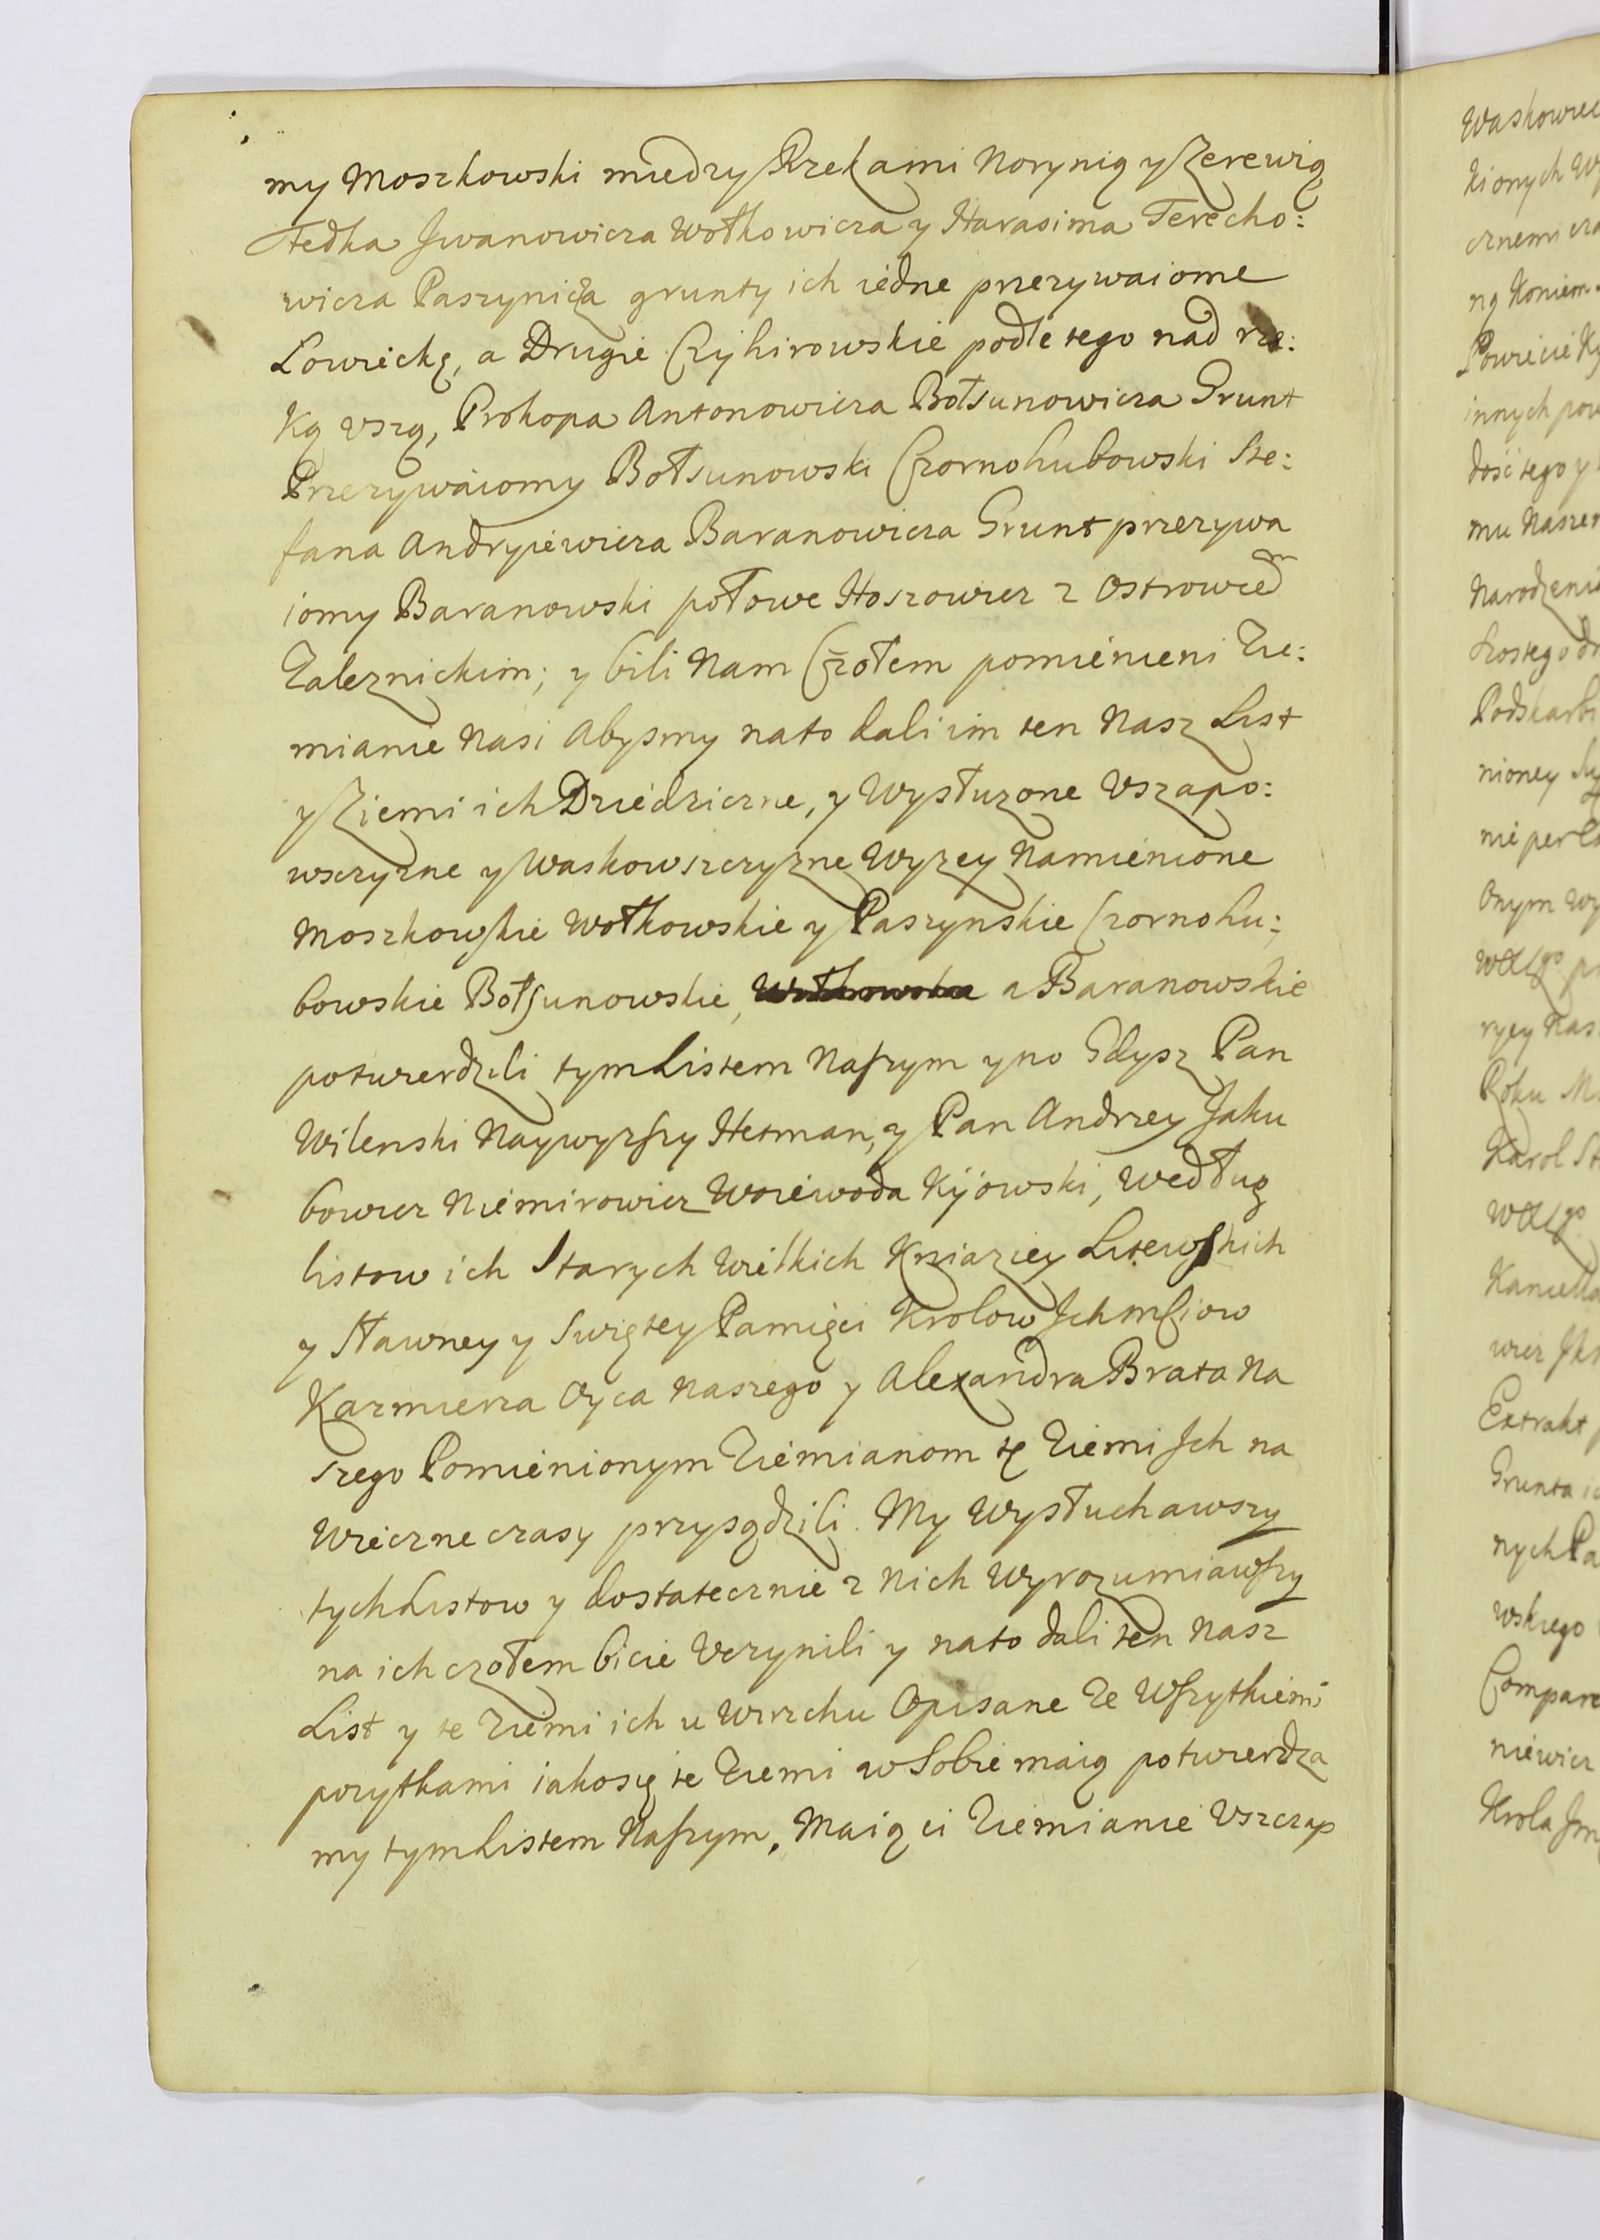 my Moszkowski miedzy Rzekami Norynią y Zerewią
Fedka Jwanowicza Wołkowicza y Harasima Terecho:
wicza Paszynicza grunty ich iedne przezywaiome
Lowieckę, a Drugie Czyhirowskie podle tego nad rze:
Ką Vszą, Prokopa Antonowicza Bołsunowicza Grunt
Przezywaiomy Bołsunowski Czornohubowski Ste:
fana Andryiewicza Baranowicza Grunt przezywa
iomy Baranowski połowe Hoszowicz z Ostrowiem
Zaleznickim; y bili Nam Czołem pomienieni Zie:
mianie Nasi Abysmy nato dali im ten Nasz List
y Ziemi ich Dziedziczne, y Wysłuzone Vszapo:
wszczyzne y Waskowszczyzne Wyzey Namienione
Moszkowskie Wołkowskie y Paszynskie Czornohu:
bowskie Bołsunowskie, a Baranowskie
potwierdzili tym Listem Naszym yno Gdysz Pan
Wilenski Naywyzszy Hetman, y Pan Andrzey Jaku
bowicz Niemirowicz Woiewoda Kijowski, Według
listow ich Starych Wielkich Kniaziey Litewskich
y Sławney y Swiętey Pamięci Krolow Jchmściow
Kazmierza Oyca Naszego y Alexandra Brata Na
szego Pomienionym Ziemianom tę Ziemi Jch na
Wieczne czasy przysądzili. My Wysłuchawszy
tych Listow y dostatecznie z Nich Wyrozumiawszy
na ich czołem bicie Vczynili y nato dali ten Nasz
List y te Ziemi ich u Wierzchu Opisane Ze Wszytkiemi
pozytkami iakosię te Ziemi w Sobie maią potwierdza
my tym Listem Naszym, Maią ci Ziemianie Vszczap
Waskowiec
cznemi
ną Koniem
Powiecie
innych
dość tego y
mu Naszem
Narodzenia
Podskarbi
nioney
Onym
Roku
Karol
Extrakt
Grunta
nych
wskiego
niewicz
Krola